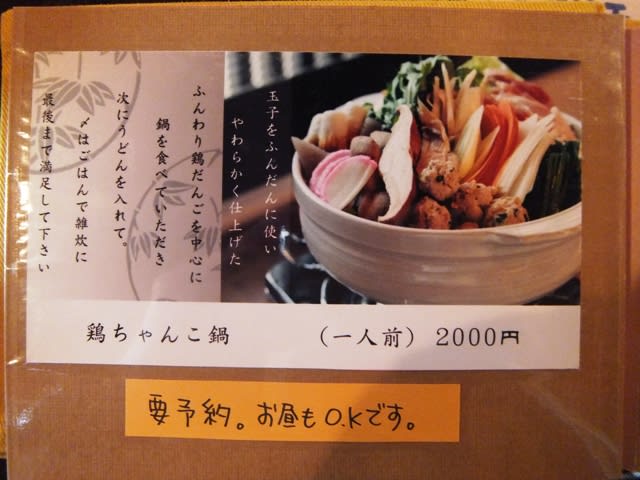 玉子をふんだんに使い
やわらかく仕上げた
ふんわり鶏だんごを中心に
鍋を食べていただき
次にうどんを入れて。
〆はごはんで雑炊に
最後まで満足して下さい
鶏ちゃんこ鍋 (一人前) 2000円
要予約。お昼もO.Kです。